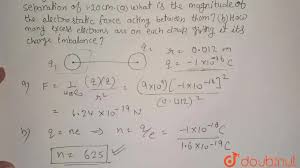 separation of 1.20 cm. (a) what is the magnitude of
the electrostatic force acting between them? (b) How
many excess electrons are on each drop, giving it its
charge imbalance?
q₁ q₂ r = 0.012 m
q = -1 × 10⁻¹⁶ C
a) F = 1/4πε₀ (q)(q)/r² = (9×10⁹)[-1×10⁻¹⁶]²/(0.012)²
= 6.24 × 10⁻¹⁹ N
b) q = ne ⇒ n = q/e = -1×10⁻¹⁶ C/1.6×10⁻¹⁹ C
n = 625
doubtnut